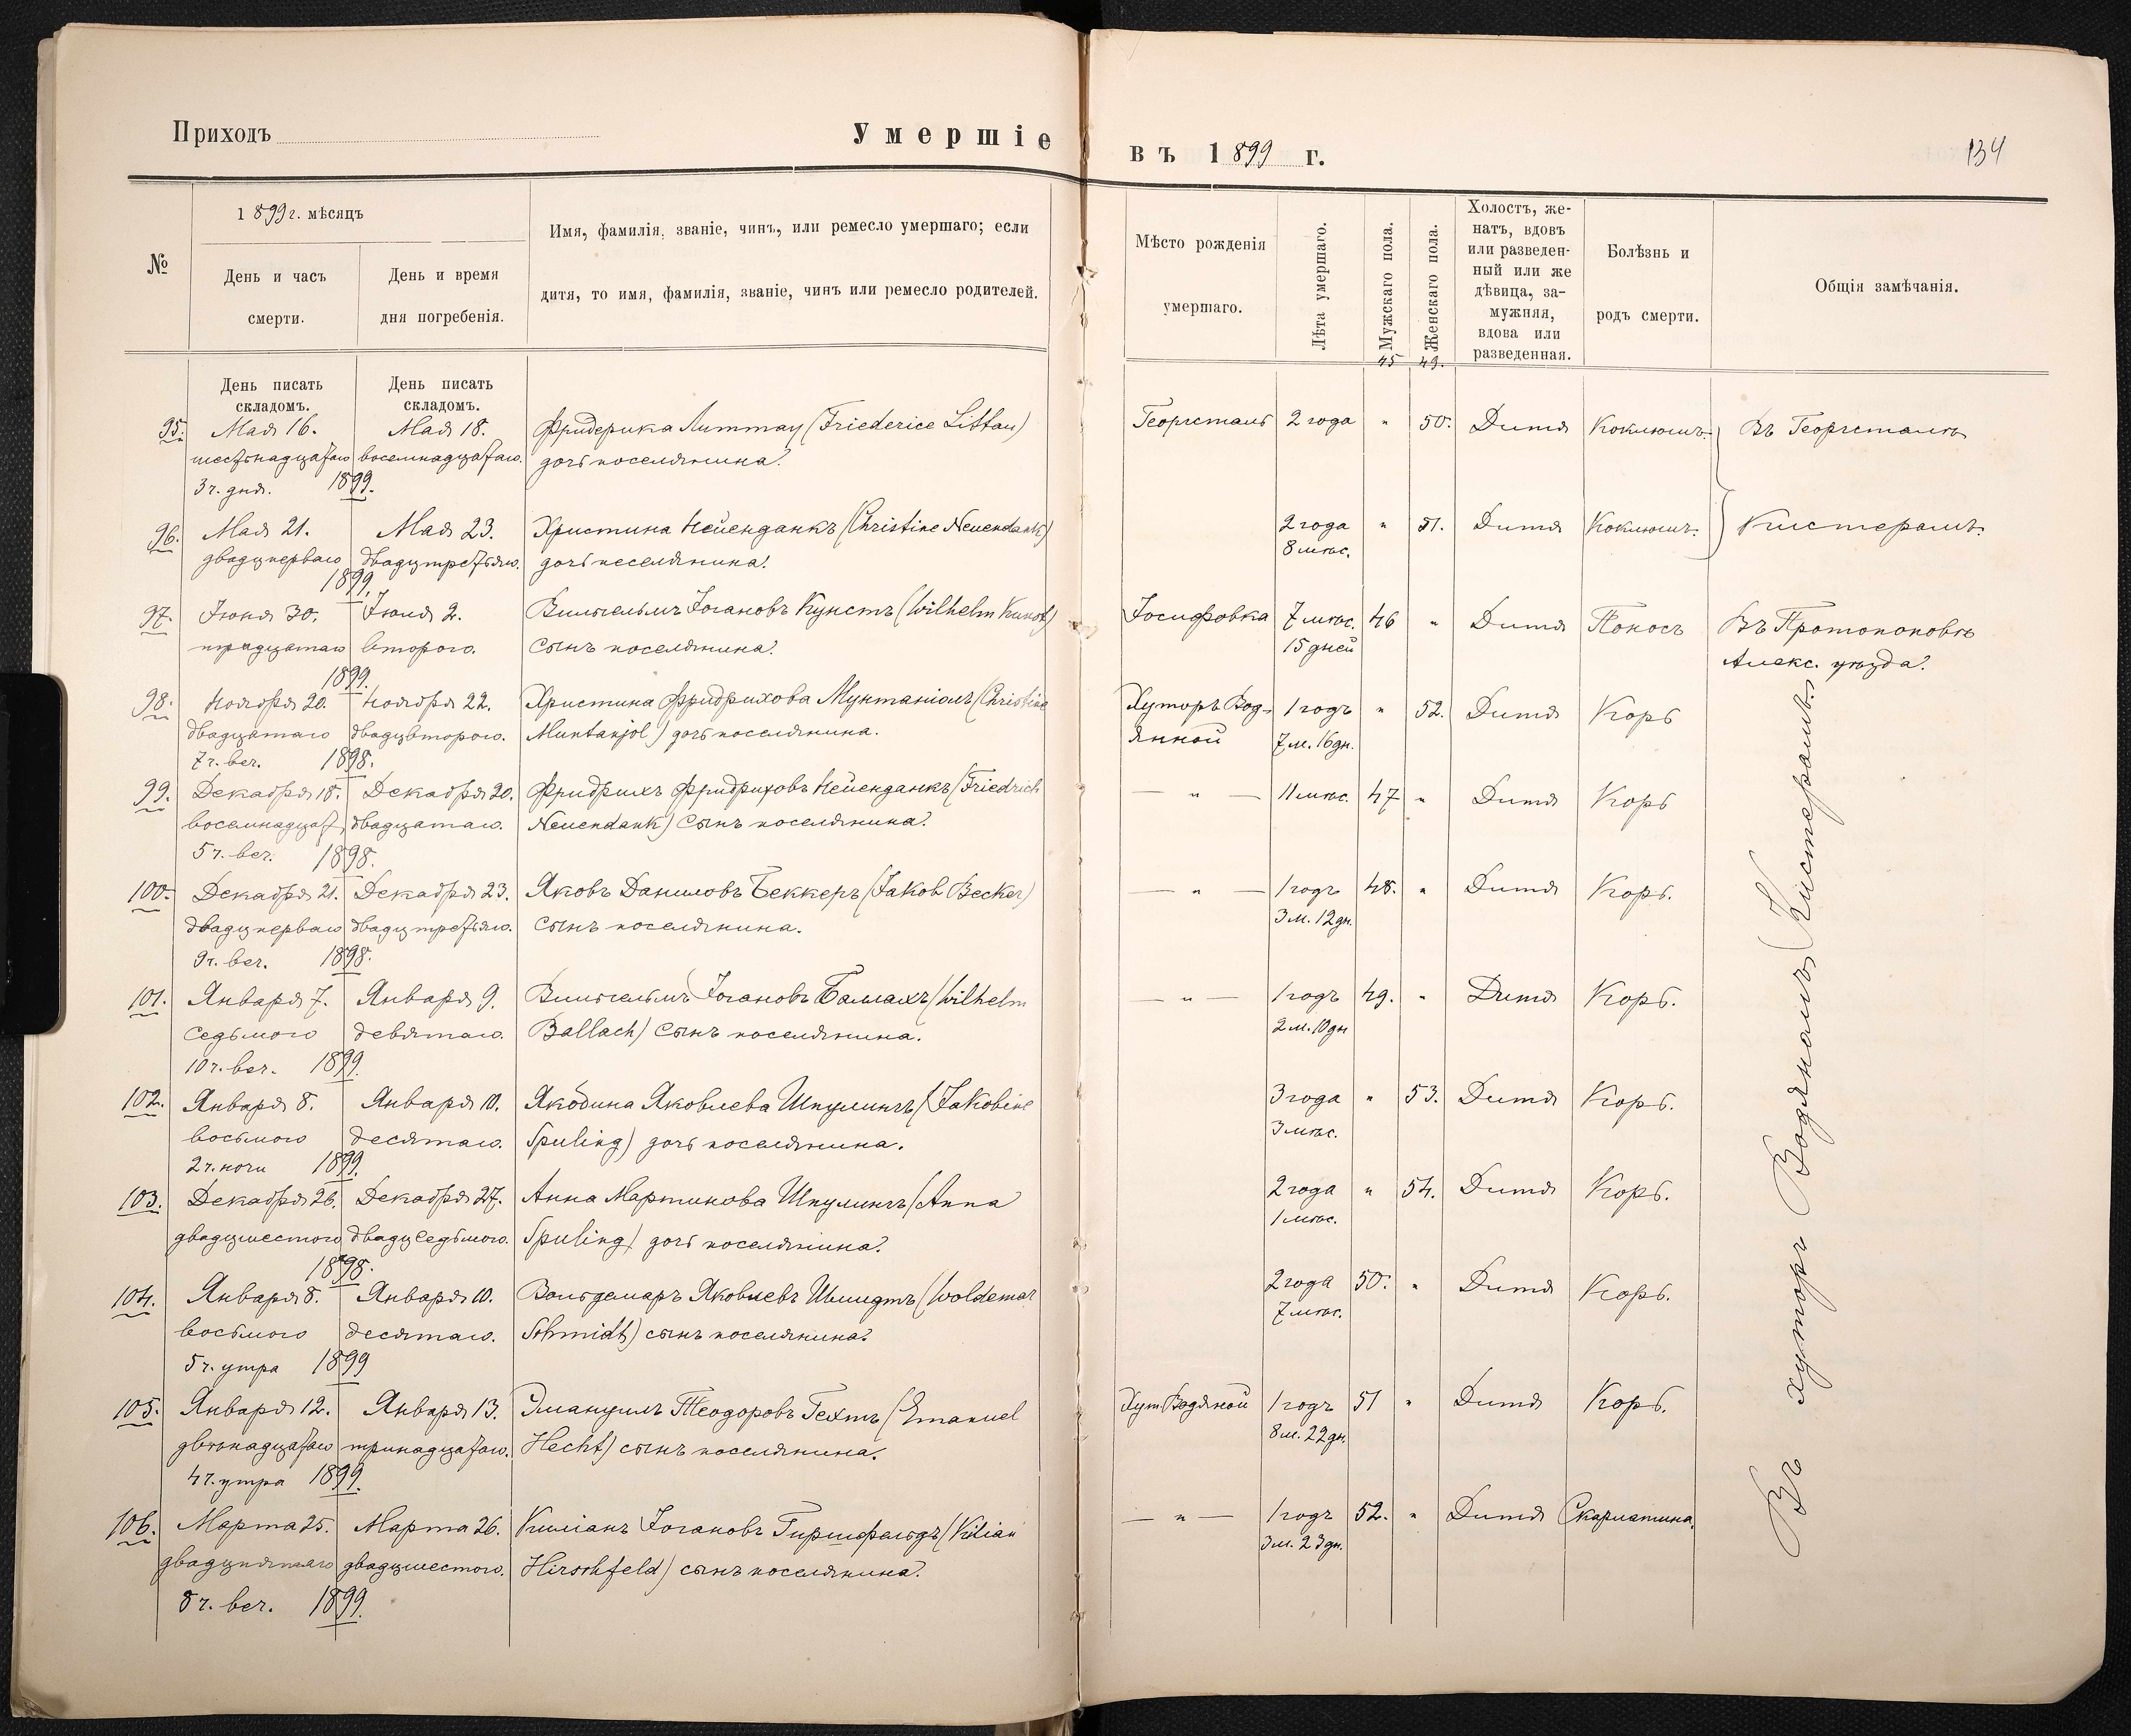 Приходъ
Умершіе
въ 1899 г.
134
№
1899 г. мѣсяцъ
День и часъ
смерти.
День и время
дня погребенія.
Имя, фамилія, званіе, чинъ, или ремесло умершаго; если
дитя, то имя, фамилія, званіе, чинъ или ремесло родителей.
Мѣсто рожденія
умершаго.
Лѣта умершаго.
Мужскаго пола.
Женскаго пола.
Холостъ, же-
натъ, вдовъ
или разведен-
ный или же
дѣвица, за-
мужняя,
вдова или
разведенная.
Болѣзнь и
родъ смерти.
Общія замѣчанія.
45 49.
День писать
складомъ.
День писать
складомъ.
95. Мая 16. Мая 18. Фридерика Литтау (Friederice Littau) Георгсталь 2 года " 50. Дитя Коклюшъ. Въ Георгсталѣ
шестьнадцатаго восемнадцатаго. дочь поселянина.
3 ч. дня. 1899.
96. Мая 21. Мая 23. Христина Нейенданкъ (Christine Neuendank) 2 года " 51. Дитя Коклюшъ. Кистеромъ.
8 мѣс.
двадцперваго двадцтретьяго. дочь поселянина.
1899.
97. Іюня 30. Іюля 2. Вильгельмъ Іогановъ Кунстъ (Wilhelm Kunst) Іосифовка 7 мѣс. 46 " Дитя Поносъ Въ Протопоповкѣ
15 дней
тридцатаго второго. сынъ поселянина. Алекс. уѣзда.
1899.
98. Ноября 20. Ноября 22. Христина Фридрихова Мунтаніолъ (Christine Хуторъ Вод- 1 годъ " 52. Дитя Корь
двадцатаго двадцвторого. Muntanjol) дочь поселянина. янной 7 м. 16 дн.
7 ч. веч. 1898.
99. Декабря 18. Декабря 20. Фридрихъ Фридриховъ Нейенданкъ (Friedrich — " — 11 мѣс. 47 " Дитя Корь
восемнадцат. двадцатаго. Neuendank) сынъ поселянина.
5 ч. веч. 1898.
100. Декабря 21. Декабря 23. Яковъ Даниловъ Беккеръ (Jakob Becker) — " — 1 годъ 48. " Дитя Корь.
3 м. 12 дн.
двадцперваго двадцтретьяго. сынъ поселянина.
9 ч. веч. 1898.
101. Января 7. Января 9. Вильгельмъ Іогановъ Баллахъ (Wilhelm — " — 1 годъ 49. " Дитя Корь.
2 м. 10 дн
седьмого девятаго. Ballach) сынъ поселянина.
10 ч. веч. 1899.
102. Января 8. Января 10. Якобина Яковлева Шпулингъ (Jakobine 3 года " 53. Дитя Корь.
3 мѣс.
восьмого десятаго. Spuling) дочь поселянина.
2 ч. ночи 1899.
103. Декабря 26. Декабря 27. Анна Мартинова Шпулингъ (Anna 2 года " 54. Дитя Корь.
1 мѣс.
двадцшестого двадцседьмого. Spuling) дочь поселянина.
1898.
104. Января 8. Января 10. Вольдемаръ Яковлевъ Шмидтъ (Woldemar 2 года 50. " Дитя Корь.
7 мѣс.
восьмого десятаго. Schmidt) сынъ поселянина.
5 ч. утра 1899
105. Января 12. Января 13. Эмануилъ Теодоровъ Гехтъ (Emanuel Хут. Водяной 1 годъ 51 " Дитя Корь.
8 м. 22 дн.
двѣнадцатаго тринадцатаго. Hecht) сынъ поселянина.
4 ч. утра 1899.
106. Марта 25. Марта 26. Киліанъ Іогановъ Гиршфельдъ (Kilian — " — 1 годъ 52. " Дитя Скарлатина.
3 м. 23 дн.
двадцпятаго двадцшестого. Hirschfeld) сынъ поселянина.
8 ч. веч. 1899.
Въ хуторѣ Водяномъ (Кистеромъ.